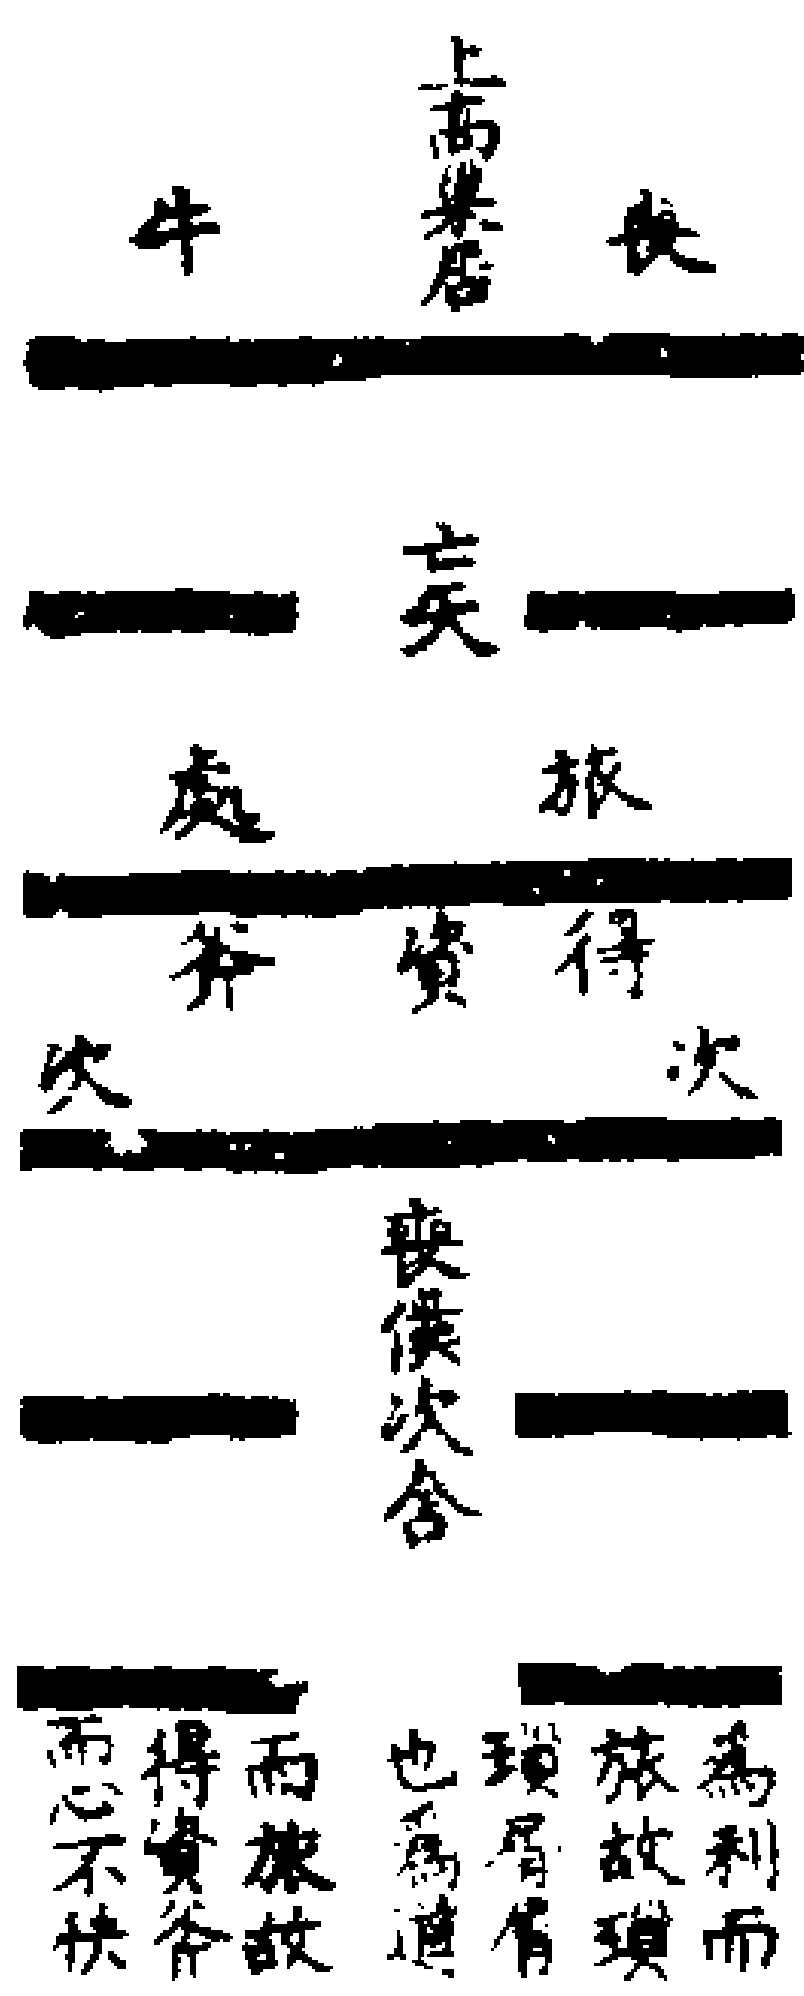 上高巢居
喪牛
亡矢
旅處
得資斧
次次
喪僕次舍
為利而
旅故瑣
瑣屑屑
也為道
而旅故
得資斧
而心不快